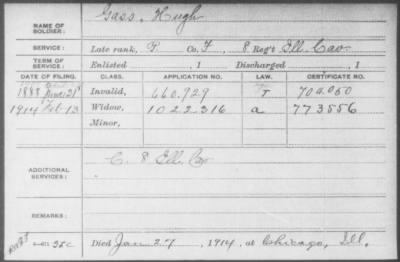 NAME OF SOLDIER: Gass, Hugh
SERVICE: Late rank, P. Co. F, 8 Reg't Ill. Cav.
TERM OF SERVICE: Enlisted , 1 Discharged , 1
DATE OF FILING. CLASS. APPLICATION NO. LAW. CERTIFICATE NO.
1888 Invalid, 660.929
1914 Feb-13 Widow, 1022.316 a 773556
Minor,
ADDITIONAL SERVICES: C. 8 Ill. Cav
REMARKS:
Died Jan 27, 1914, at Chicago, Ill.